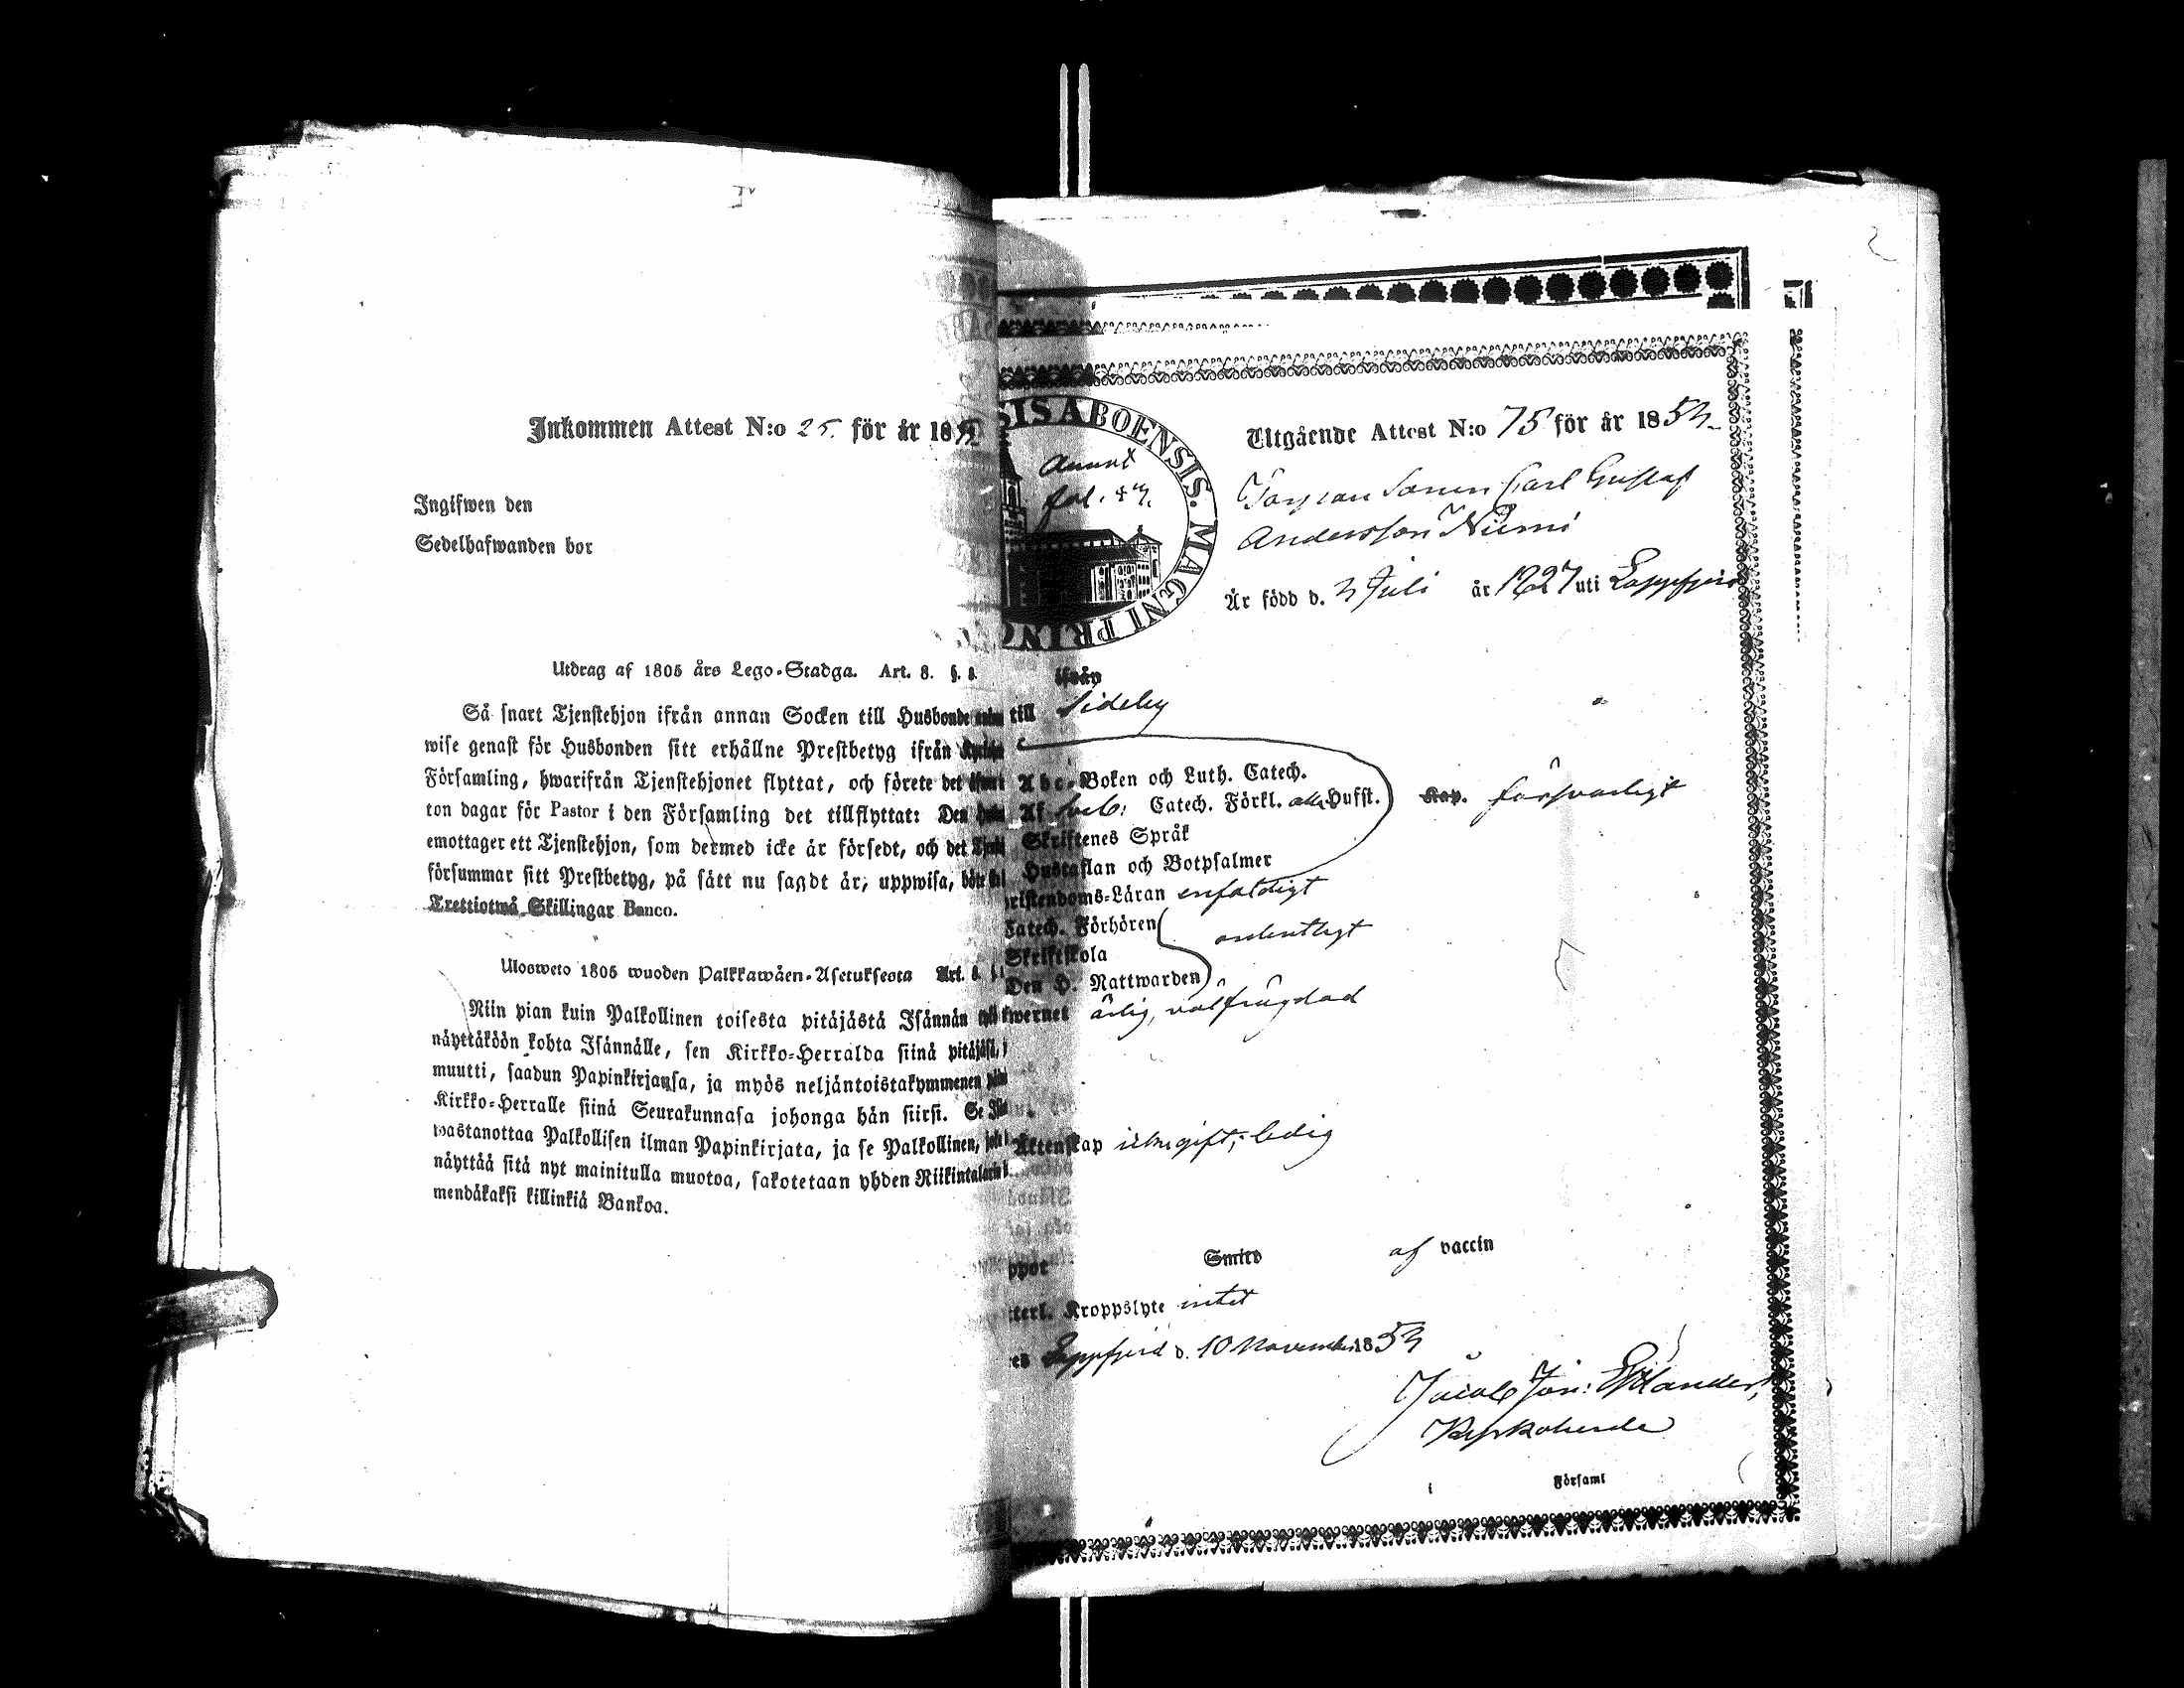 Inkommen Attest N:o 25. för år 18
Ingifwen den
Sedelhafwanden bor
Utdrag af 1805 års Lego-Stadga. Art. 8. §.
Så snart Tjenstehjon ifrån annan Socken till Husbonde
wise genast för Husbonden sitt erhållne Prestbetyg ifrån
Församling, hwarifrån Tjenstehjonet flyttat, och förete det
ton dagar för Pastor i den Församling det tillflyttat: Den
emottager ett Tjenstehjon, som dermed icke är försedt, och det
försummar sitt Prestbetyg, på sätt nu sagdt är, uppwisa,
Trettiotwå Skillingar Banco.
Ulosweto 1805 wuoden Palkkawäen-Asetuksesta Art. 8.
Niin pian kuin Palkollinen toisesta pitäjästä Isännän
näyttäköön kohta Isännälle, sen Kirkko-Herralda siinä pitäjäsä,
muutti, saadun Papinkirjansa, ja myös neljäntoistakymmenen
Kirkko-Herralle siinä Seurakunnasa johonga hän siirsi. Se
wastanottaa Palkollisen ilman Papinkirjata, ja se Palkollinen,
näyttää sitä nyt mainitulla muotoa, sakotetaan yhden Riikintalarin
mendäkaksi killinkiä Bankoa.
SIS ABOENSIS. MAGNI PRINC
Annot
fol. 47.
Utgående Attest N:o 75 för år 1853
Carl Gustaf
Andersson Niemi
Är född d. 3 Juli år 1827 uti Lappfjerd
ifrån
till Sideby
Abc-Boken och Luth. Catech.
Af Sveb: Catech. Förkl. alla Hufst. Kap. försvarligt
Skriftenes Språk
Hustaflan och Botpsalmer
ristendoms-Läran enfaldigt
Catech. Förhören
ordentligt
Skriftskola
Den H. Nattwarden
wernet ärlig, välfrägdad
Äktenskap ledig
Smitt af vaccin
ppor
terl. Kroppslyte intet
Lappfjerd d. 10 November 1853
Jacob Jon: Estlander,
Kyrkoherde
i Församl